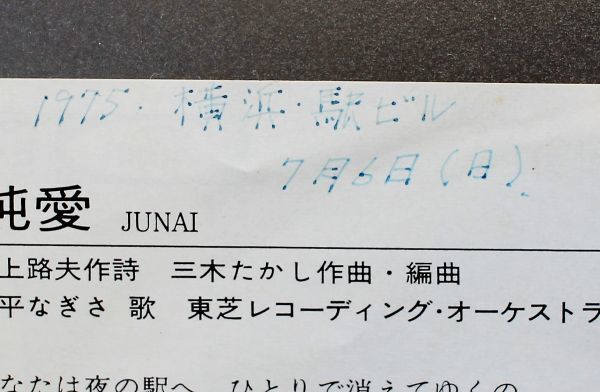 1975. 横浜・駅ビル
7月6日(日).
純愛 JUNAI
上路夫作詩 三木たかし作曲・編曲
平なぎさ 歌 東芝レコーディング・オーケストラ
なたは夜の駅へ ひとりで消えてゆくの